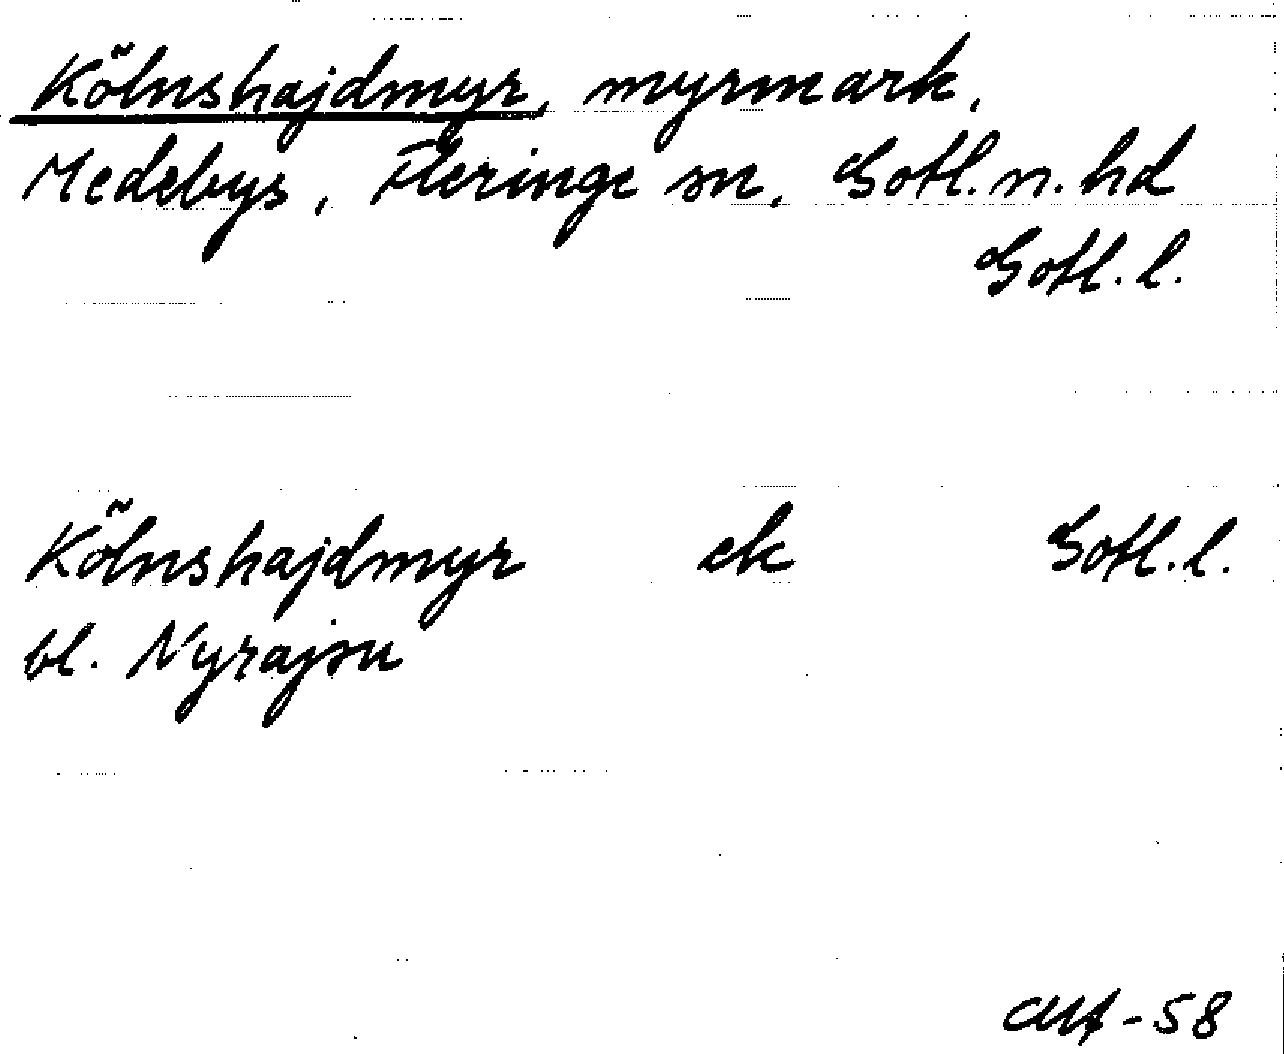 Kõlnshajdmyr, myrmark,
Medebys, Fleringe sn, Gotl. n. hd
Gotl. l.
Kõlnshajdmyr ek Gotl. l.
bl. Nyrajsu
-58